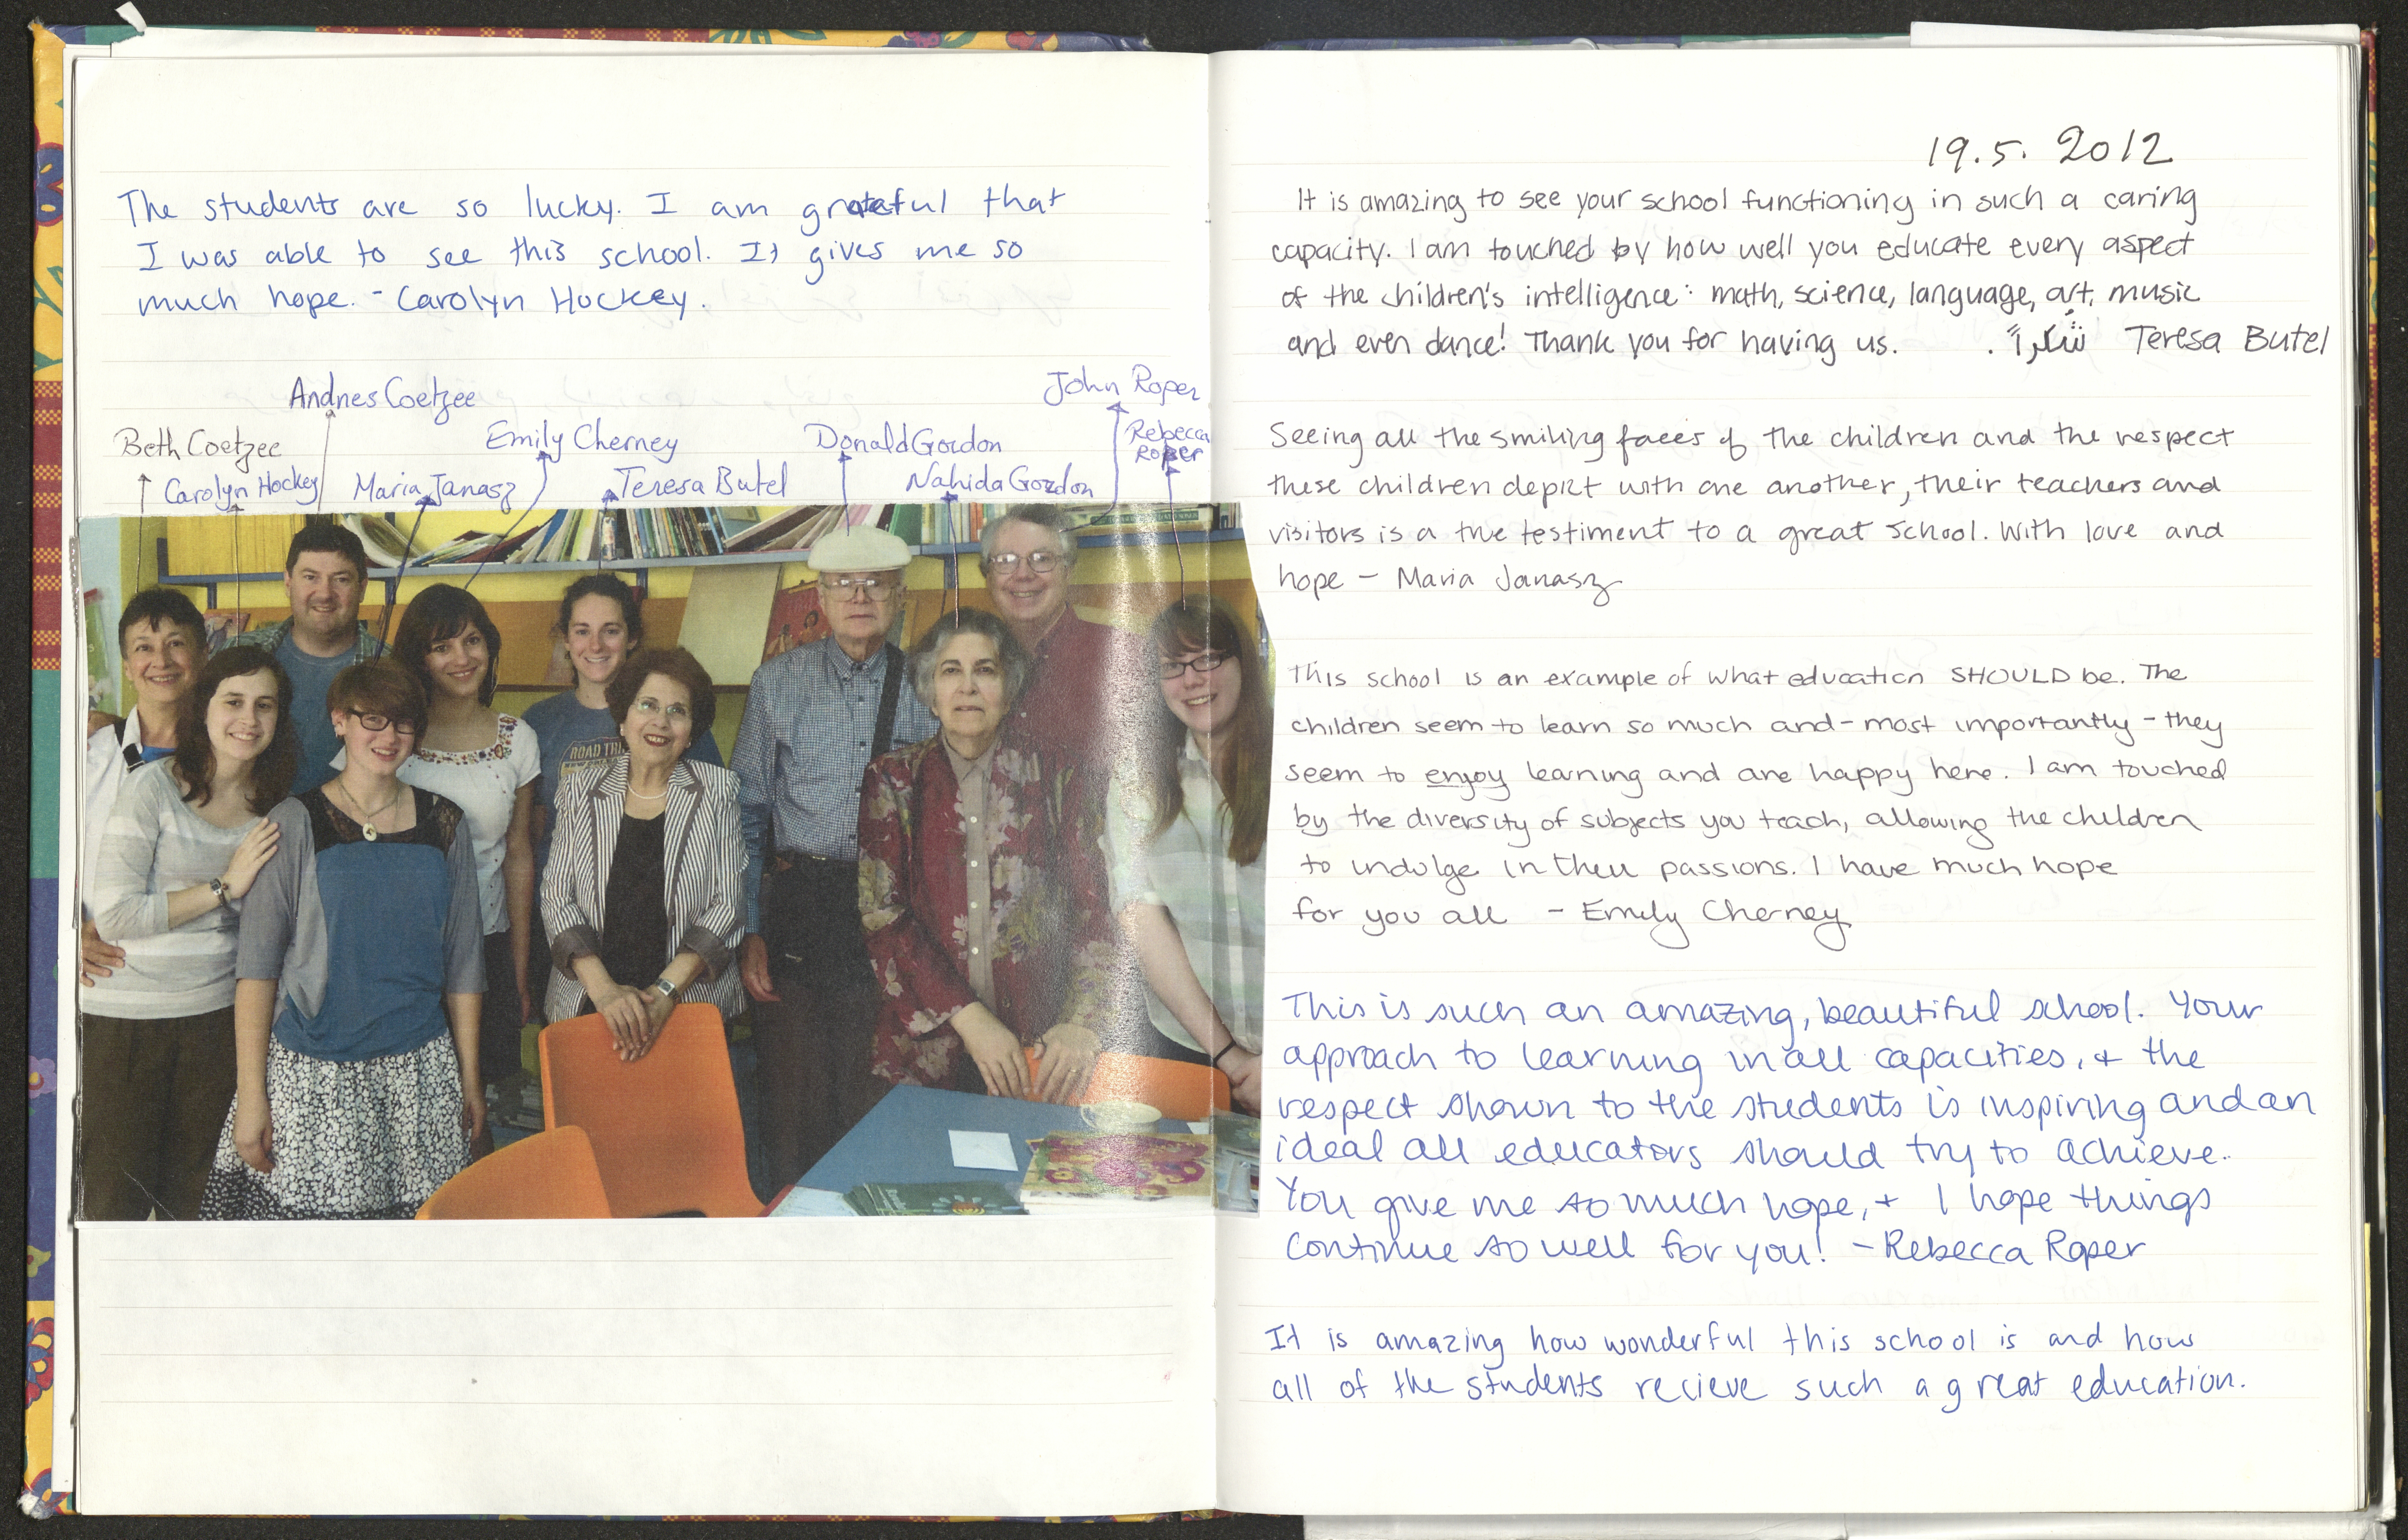 The students are so lucky. I am grateful that
I was able to see this school. It gives me so
much hope. - Carolyn Hockey.
Andries Coetzee
John Roper
Beth Coetzee
Emily Cherney
Donald Gordon
Rebecca
Roper
Carolyn Hockey
Maria Janasz
Teresa Butel
Nahida Gordon
ROAD TRI
19.5. 2012
It is amazing to see your school functioning in such a caring
capacity. I am touched by how well you educate every aspect
of the children's intelligence: math, science, language, art, music
and even dance! Thank you for having us. شكراً. Teresa Butel
Seeing all the smiling faces of the children and the respect
these children depict with one another, their teachers and
visitors is a true testiment to a great school. With love and
hope - Maria Janasz
This school is an example of what education SHOULD be. The
children seem to learn so much and - most importantly - they
seem to enjoy learning and are happy here. I am touched
by the diversity of subjects you teach, allowing the children
to indulge in their passions. I have much hope
for you all - Emily Cherney
This is such an amazing, beautiful school. Your
approach to learning in all capacities, + the
respect shown to the students is inspiring and an
ideal all educators should try to achieve.
You give me so much hope, + I hope things
continue so well for you! - Rebecca Roper
It is amazing how wonderful this school is and how
all of the students recieve such a great education.